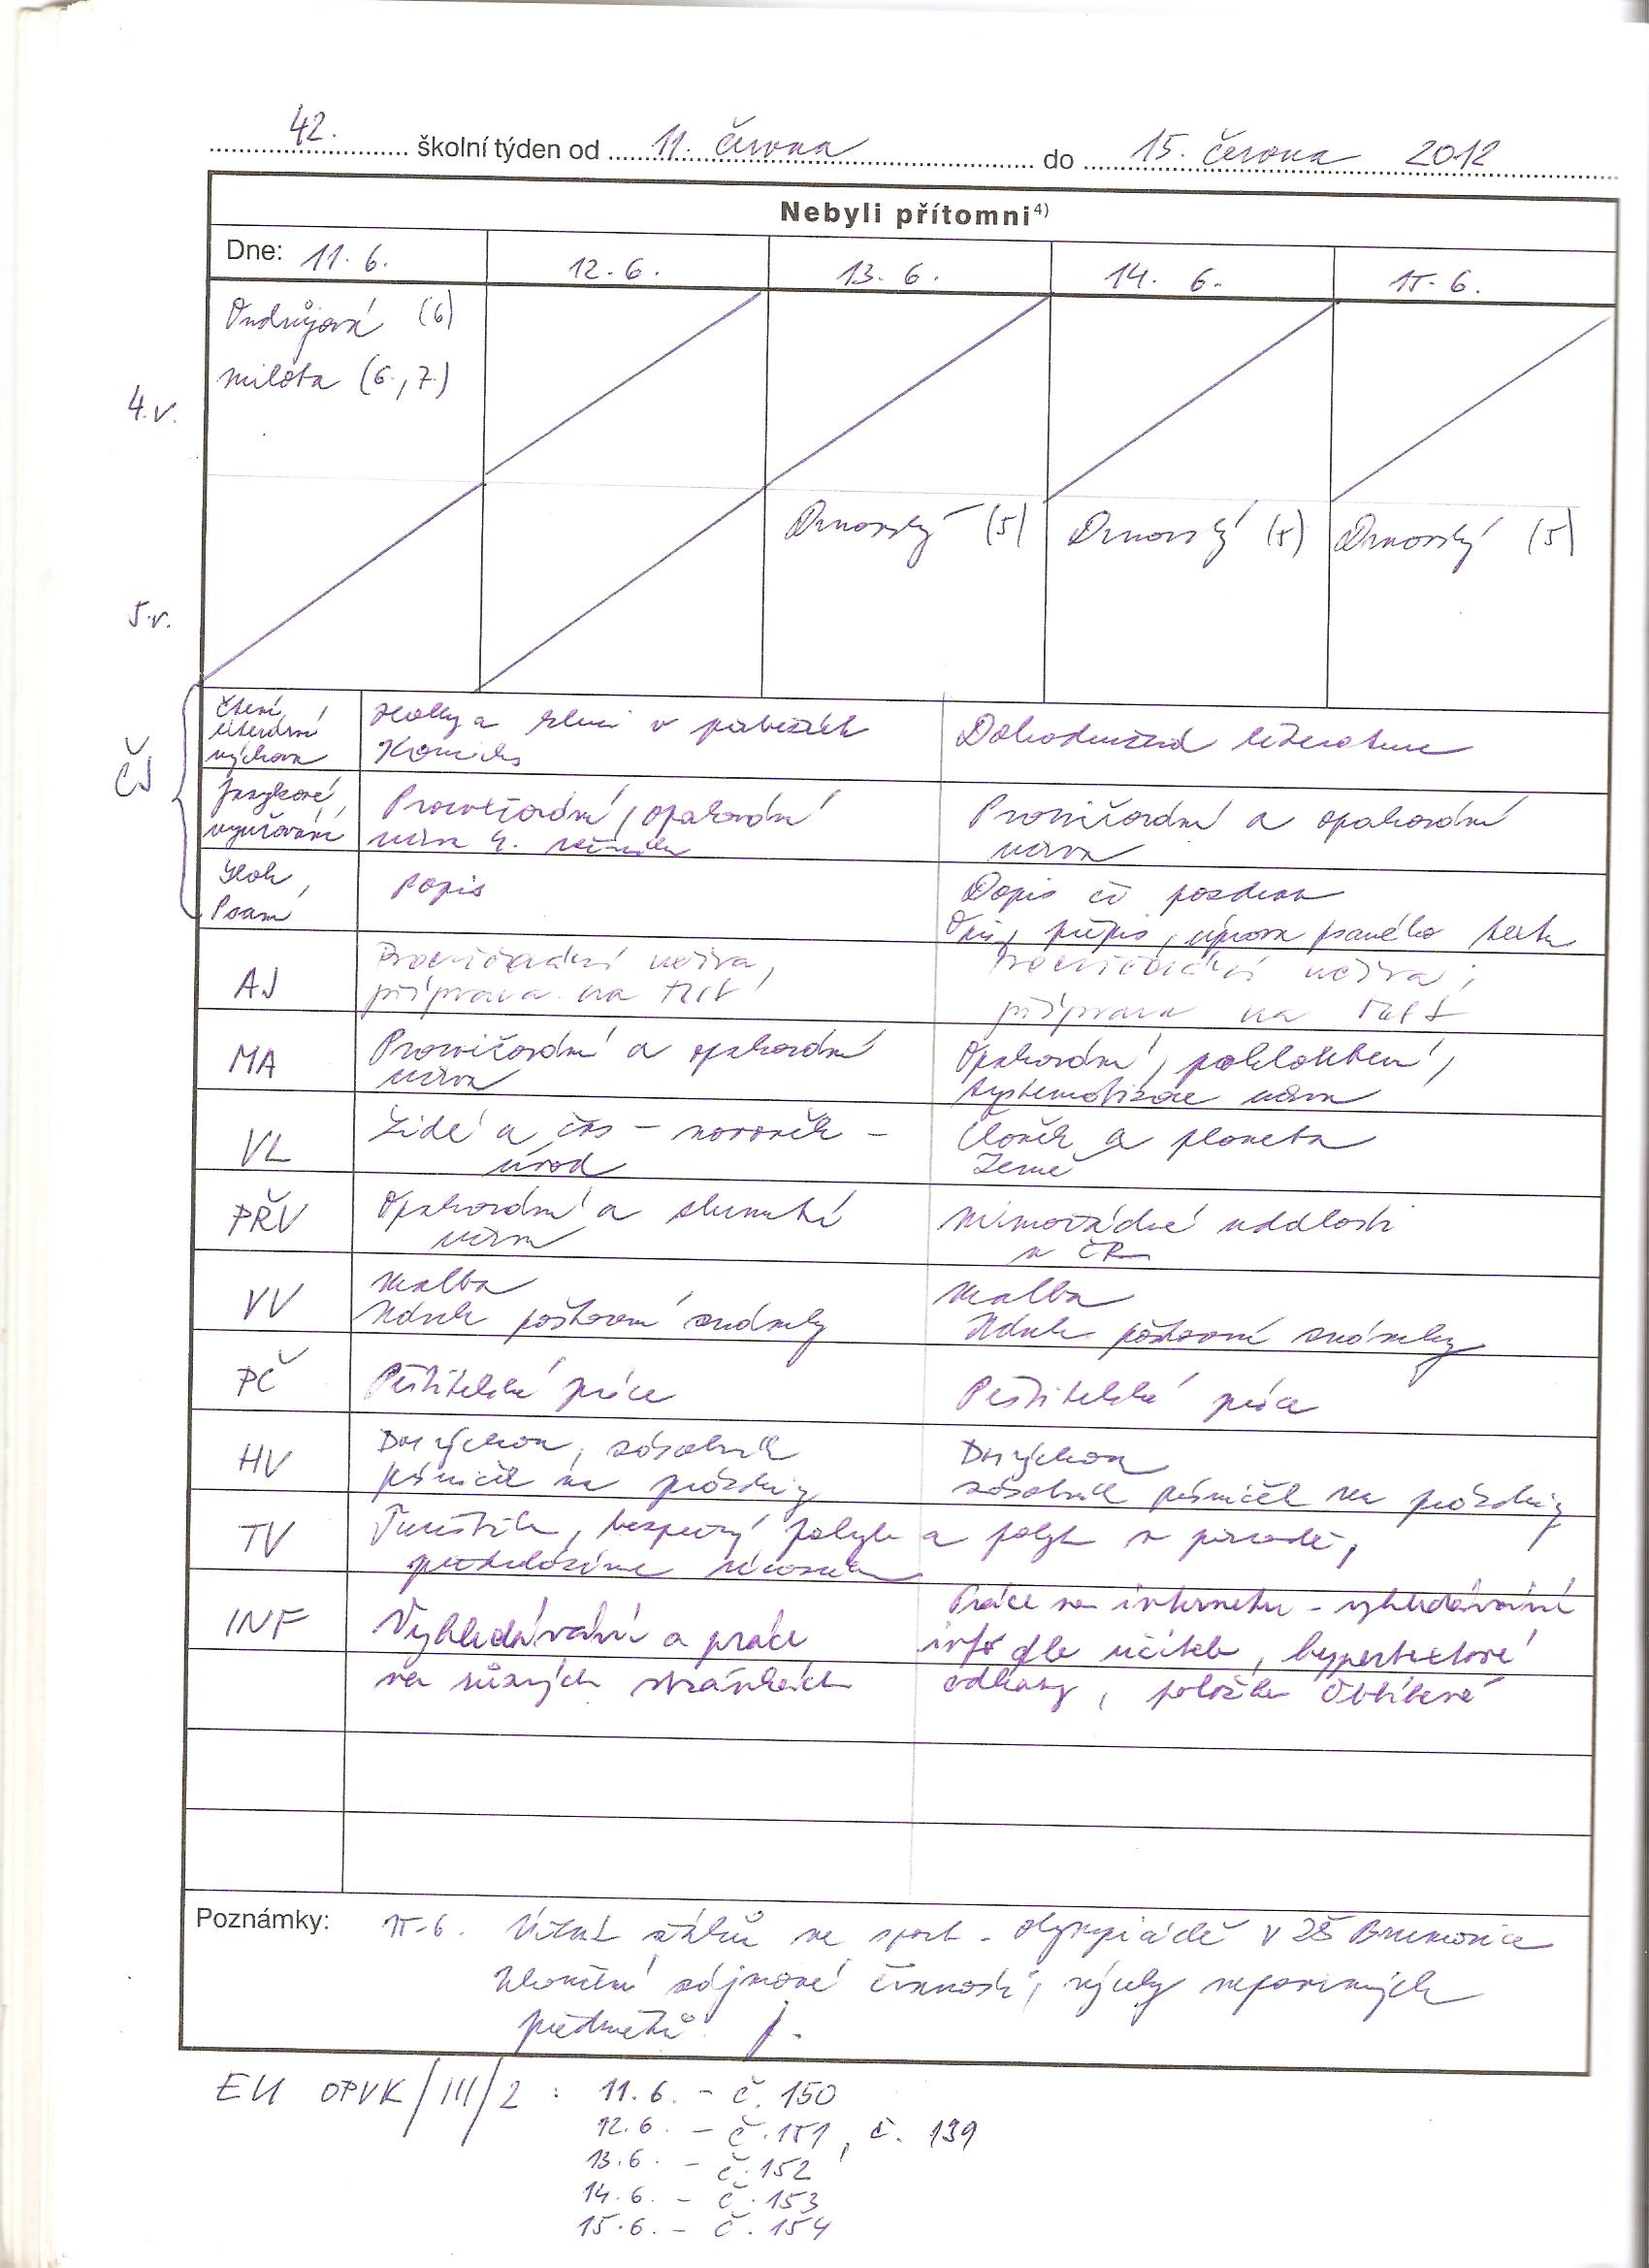 42. školní týden od 11. června do 15. června 2012
Nebyli přítomni4)
Dne: 11. 6. 12. 6. 13. 6. 14. 6. 15. 6.
Ondrůjová (6)
Milota (6., 7.)
4.r.
Drnovský (5) Drnovský (5) Drnovský (5)
5.r.
ČJ
Čtení, literární výchova
Holky a kluci v příbězích
Komiks
Dobrodružná literatura
Jazykové vyučování
Procvičování, opakování
učiva 4. ročníku
Procvičování a opakování
učiva
Sloh, Psaní
Popis
Dopis či pozdrav
Opis, přepis, úprava psaného textu
AJ
Procvičování učiva,
příprava na test
Procvičování učiva,
příprava na test
MA
Procvičování a opakování
učiva
Opakování, prohloubení,
systematizace učiva
VL
Lidé a čas – novověk –
úvod
Člověk a planeta
Země
PŘV
Opakování a shrnutí
učiva
Mimořádné události
v ČR
VV
Malba
Návrh poštovní známky
Malba
Návrh poštovní známky
PČ
Pěstitelské práce
Pěstitelské práce
HV
DV výchova, zásobník
písniček na prázdniny
DV výchova
zásobník písniček na prázdniny
TV
Turistika, bezpečný pohyb a pobyt v přírodě,
INF
Vyhledávání a práce
na různých stránkách
Práce na internetu – vyhledávání
info dle učitele, hypertextové
odkazy, položka Oblíbené
Poznámky: 15.6. Účast žáků na sport. olympiádě v ZŠ Brumovice
Ukončení zájmové činnosti, výuky nepovinných
předmětů.
EU OPVK/III/2 : 11. 6. - č. 150
12.6. - č. 151, č. 139
13.6. - č. 152
14.6. - č. 153
15.6. - č. 154